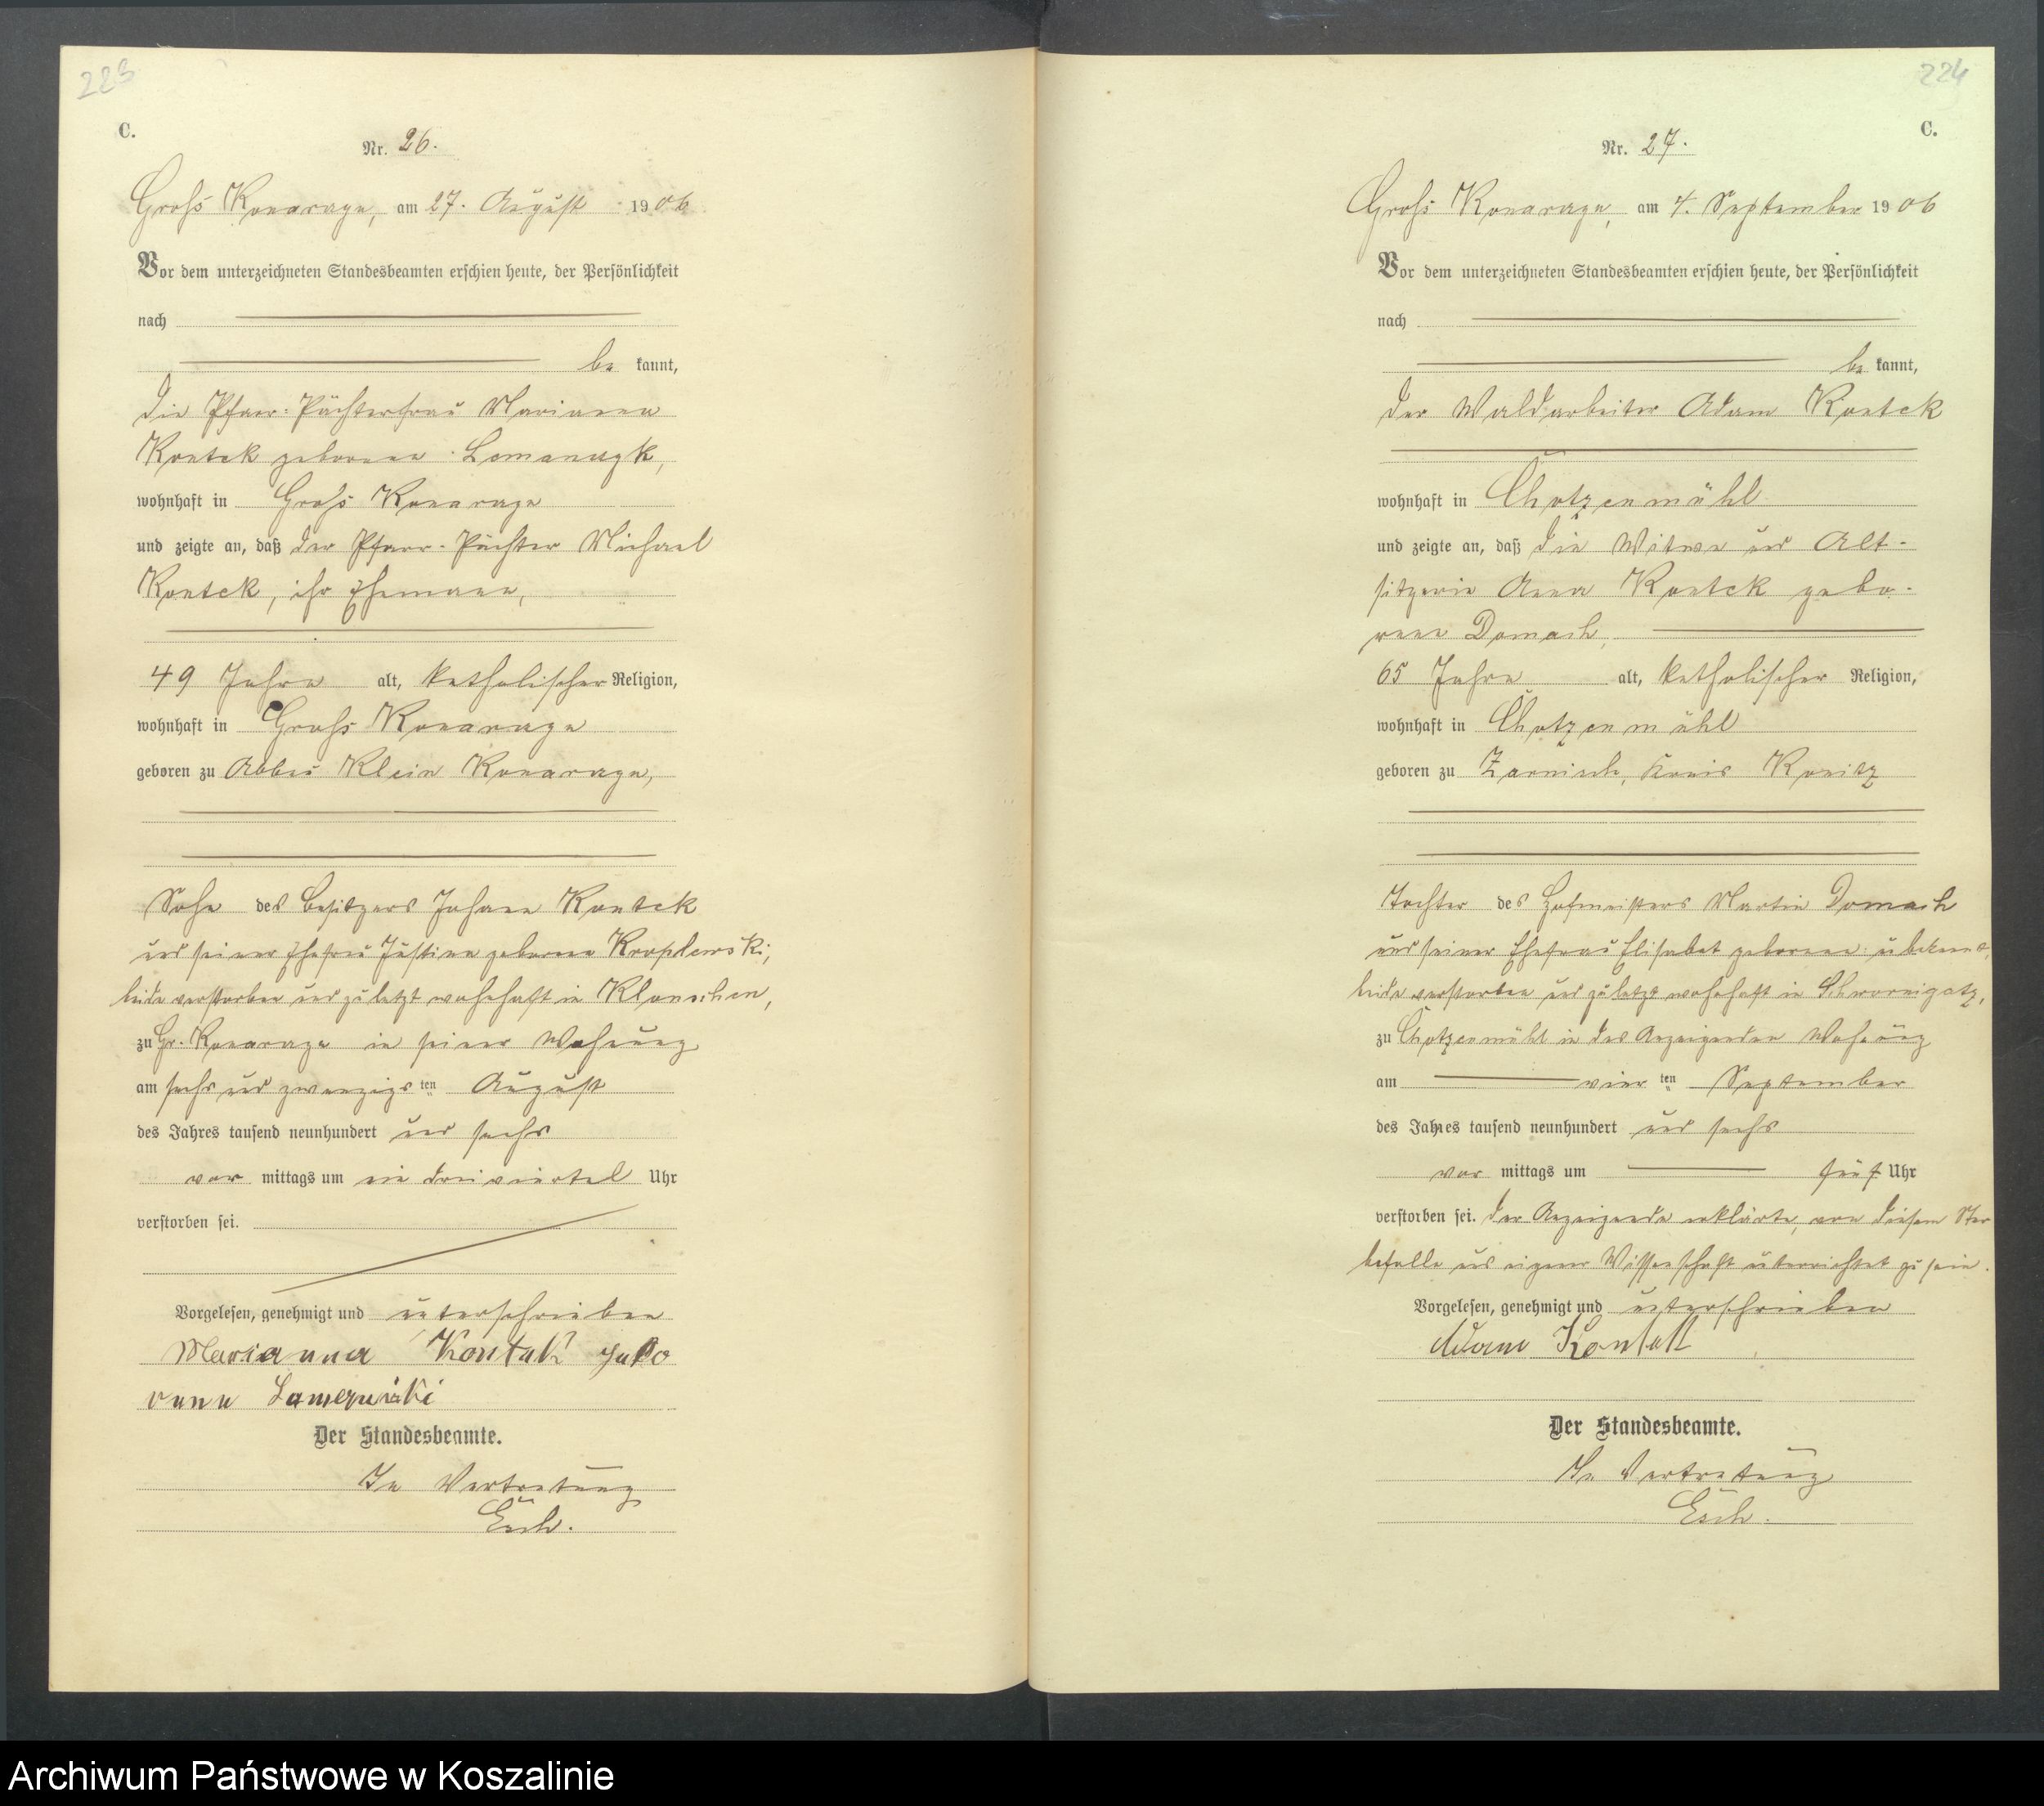 223
C.
Nr. 26.
Groß Konarzyn, am 27. August 1906
Vor dem unterzeichneten Standesbeamten erschien heute, der Persönlichkeit
nach
be kannt,
die Pfarr-Pächterfrau Marianna
Kontek geborene
wohnhaft in Groß Konarzyn
und zeigte an, daß der Pfarr-Pächter Michael
Kontek, ihr Ehemann,
49 Jahre alt, katholischer Religion,
wohnhaft in Groß Konarzyn
geboren zu Abbau Klein Konarzyn,
Sohn des Besitzers Johann Kontek
und seiner Ehefrau Justine geborene Kroplewski,
beide verstorben und zuletzt wohnhaft in Klonschen,
zu Gr. Konarzyn in seiner Wohnung
am sechs und zwanzigs ten August
des Jahres tausend neunhundert und sechs
vor mittags um ein dreiviertel Uhr
verstorben sei.
Vorgelesen, genehmigt und unterschrieben
Marianna Kontak gebo
rene
Der Standesbeamte.
In Vertretung
Esch.
224
C.
Nr. 27.
Groß Konarzyn, am 4. September 1906
Vor dem unterzeichneten Standesbeamten erschien heute, der Persönlichkeit
nach
be kannt,
der Waldarbeiter Adam Kontek
wohnhaft in Chotzenmühl
und zeigte an, daß die Witwe und Alt-
sitzerin Anna Kontek gebo-
rene Domach,
65 Jahre alt, katholischer Religion,
wohnhaft in Chotzenmühl
geboren zu Zarnisch, Kreis Konitz
Tochter des Hofmeisters Martin Domach
und seiner Ehefrau Elisabet geborene
beide verstorben und zuletzt wohnhaft in Schwornigatz,
zu Chotzenmühl in des Anzeigenden Wohnung
am vier ten September
des Jahres tausend neunhundert und sechs
vor mittags um fünf Uhr
verstorben sei. Der Anzeigende erklärte, von diesem Ster
befalle aus eigener Wissenschaft unterrichtet zu sein.
Vorgelesen, genehmigt und unterschrieben
Adam Kontek
Der Standesbeamte.
In Vertretung
Esch.
Archiwum Państwowe w Koszalinie